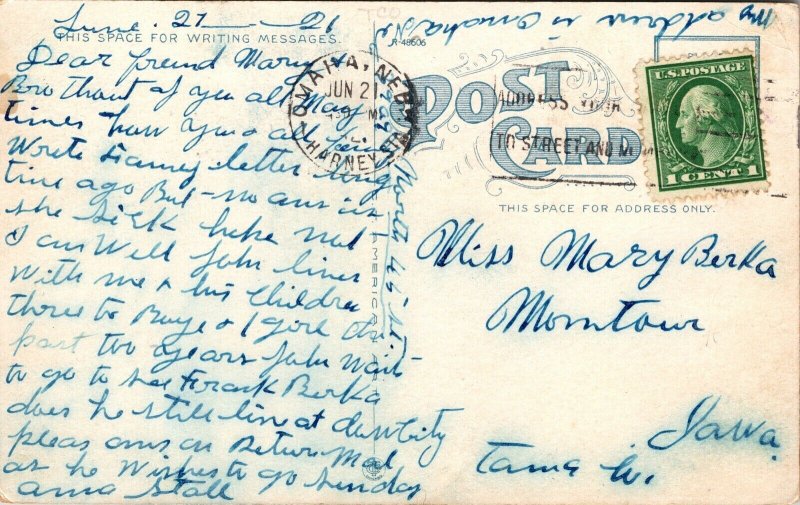 June. 27 - 21
THIS SPACE FOR WRITING MESSAGES.
Dear freind Mary &
Bro thout of you all May
times how you & all
Wrote letter long
time ago But no
she Sick hope not
I am Well John lives
With me & his Children
three to Boys & 1 girl the
past two years John Want
to go to see Frank Berka
does he still live at
pleas on Return Mail
as he Wishes to go Sunday
anna Stall
My address is Omaha Ne
North
A-48606
OMAHA, NEBR.
JUN 21
HARNEY
ADDRESS YOUR
TO STREET AND
POST
CARD
U.S. POSTAGE
1 CENT 1
THIS SPACE FOR ADDRESS ONLY.
Miss Mary Berka
Momtour
Iowa.
Tama